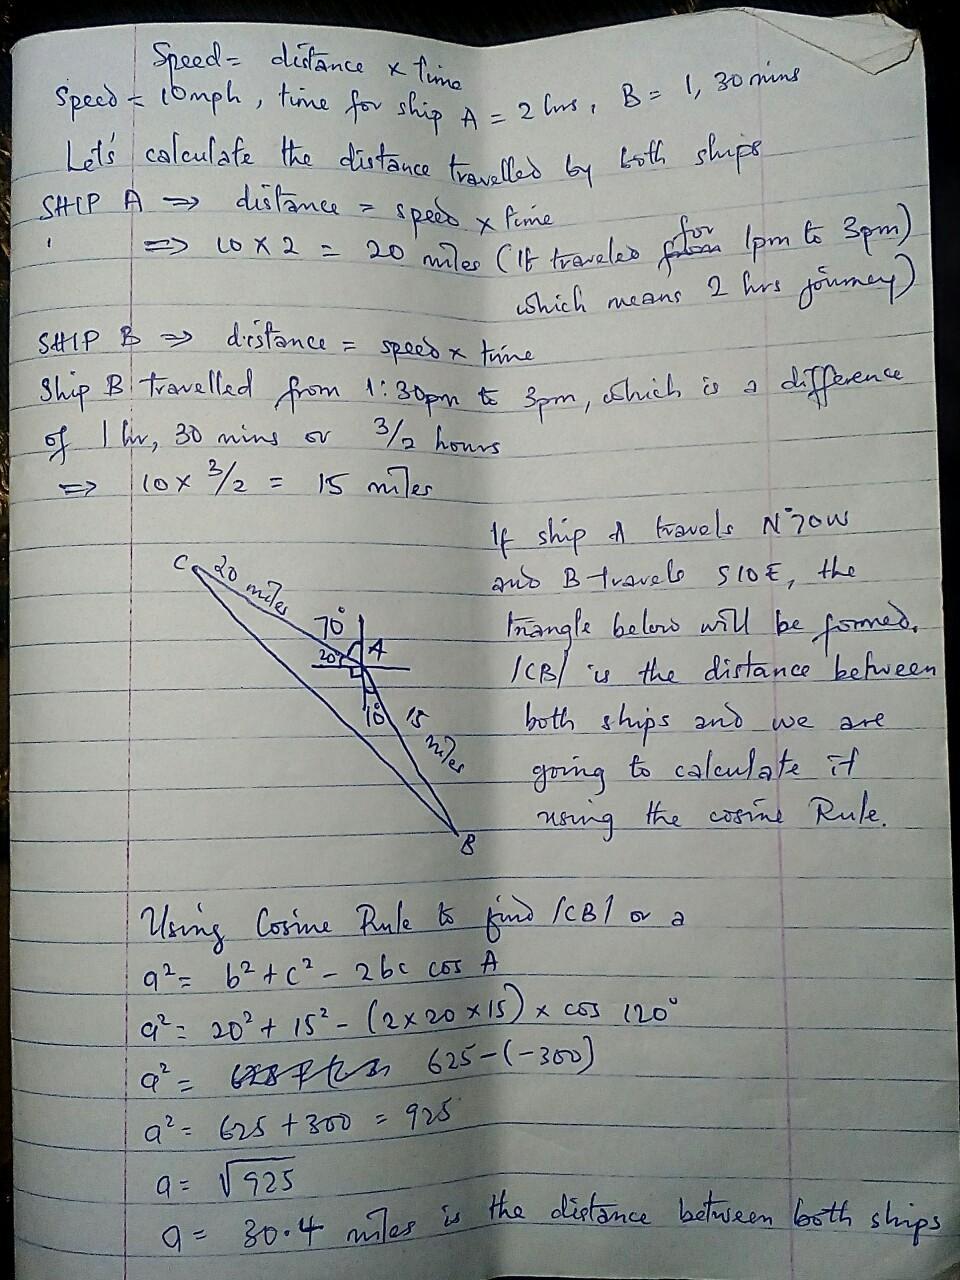 Speed = distance x time
Speed = 10mph, time for ship A = 2 hrs, B = 1, 30 mins
Let's calculate the distance travelled by both ships
SHIP A => distance = speed x time
=> 10 x 2 = 20 miles (If traveled for 1pm to 3pm)
which means 2 hrs journey)
SHIP B => distance = speed x time
Ship B travelled from 1:30pm to 3pm, which is a difference
of 1 hr, 30 mins or 3/2 hours
=> 10 x 3/2 = 15 miles
If ship A travels N°70W
and B travels S10E, the
triangle below will be formed.
/CB/ is the distance between
both ships and we are
going to calculate it
using the cosine Rule.
C 20 miles
70°
20° A
10° 15 miles
B
Using Cosine Rule to find /CB/ or a
a² = b² + c² - 2bc cos A
a² = 20² + 15² - (2 x 20 x 15) x cos 120°
a² = 625 - (-300)
a² = 625 + 300 = 925
a = √925
a = 30.4 miles is the distance between both ships